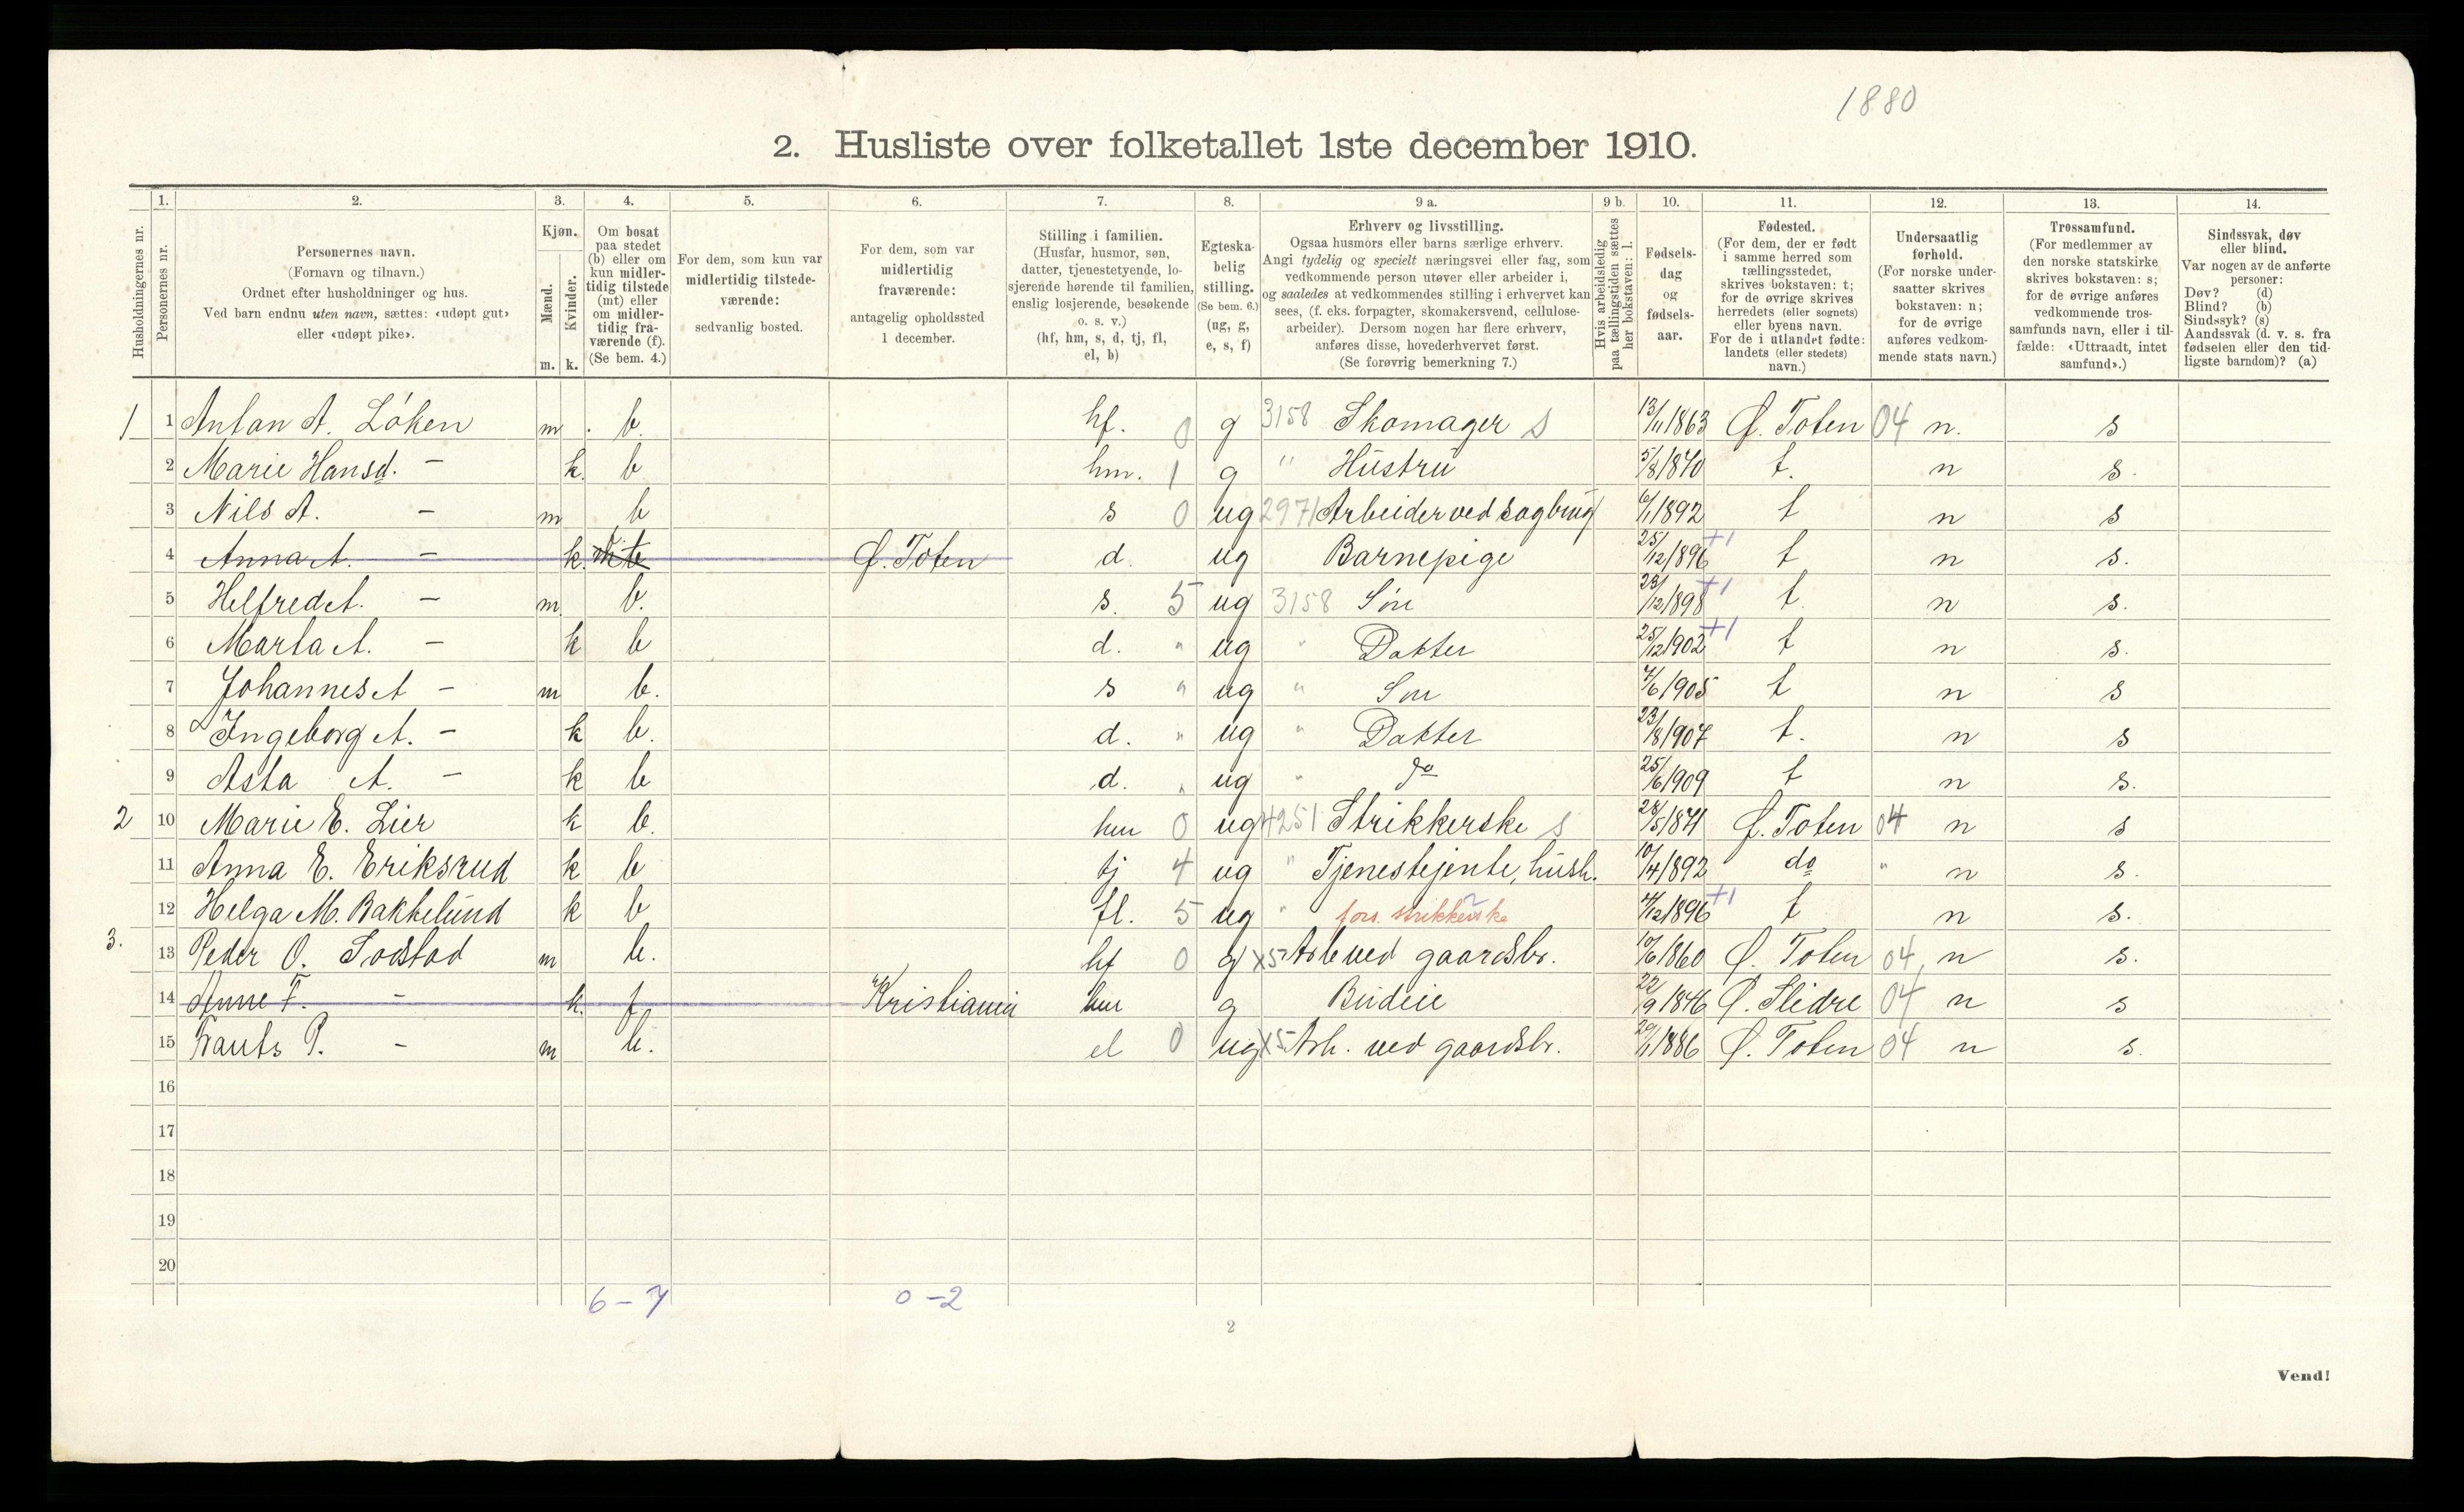 1880
2. Husliste over folketallet 1ste december 1910.
Husholdningernes nr.
1. Personernes nr.
2. Personernes navn. (Fornavn og tilnavn.) Ordnet efter husholdninger og hus. Ved barn endnu uten navn, sættes: «udøpt gut» eller «udøpt pike».
3. Kjøn. Mænd. m. Kvinder. k.
4. Om bosat paa stedet (b) eller om kun midlertidig tilstede (mt) eller om midlertidig fraværende (f). (Se bem. 4.)
5. For dem, som kun var midlertidig tilstedeværende: sedvanlig bosted.
6. For dem, som var midlertidig fraværende: antagelig opholdssted 1 december.
7. Stilling i familien. (Husfar, husmor, søn, datter, tjenestetyende, losjerende hørende til familien, enslig losjerende, besøkende o. s. v.) (hf, hm, s, d, tj, fl, el, b)
8. Egteskabelig stilling. (Se bem. 6.) (ug, g, e, s, f)
9 a. Erhverv og livsstilling. Ogsaa husmors eller barns særlige erhverv. Angi tydelig og specielt næringsvei eller fag, som vedkommende person utøver eller arbeider i, og saaledes at vedkommendes stilling i erhvervet kan sees, (f. eks. forpagter, skomakersvend, cellulosearbeider). Dersom nogen har flere erhverv, anføres disse, hovederhvervet først. (Se forøvrig bemerkning 7.)
9 b. Hvis arbeidsledig paa tællingstiden sættes her bokstaven: l.
10. Fødselsdag og fødselsaar.
11. Fødested. (For dem, der er født i samme herred som tællingsstedet, skrives bokstaven: t; for de øvrige skrives herredets (eller sognets) eller byens navn. For de i utlandet fødte: landets (eller stedets) navn.)
12. Undersaatlig forhold. (For norske undersaatter skrives bokstaven: n; for de øvrige anføres vedkommende stats navn.)
13. Trossamfund. (For medlemmer av den norske statskirke skrives bokstaven: s; for de øvrige anføres vedkommende trossamfunds navn, eller i tilfælde: «Uttraadt, intet samfund».)
14. Sindssvak, døv eller blind. Var nogen av de anførte personer: Døv? (d) Blind? (b) Sindssyk? (s) Aandssvak (d. v. s. fra fødselen eller den tidligste barndom)? (a)
1 1 Anton A. Löken m b. hf. 0 g 3158 Skomager s 13/11 1863 Ø. Toten 04 n. s
2 Marie Hansd. - k. b hm. 1 g " Hustru 5/8 1870 t. n s.
3 Nils A. - m b s 0 ug 2971 Arbeider ved sagbrug 6/1 1892 t n s
4 Anna A. - k. Ø. Toten d. ug Barnepige 25/12 1896 +1 t n s.
5 Helfred A. - m b. s. 5 ug 3158 Søn 23/12 1898 +1 t. n s.
6 Marta A. - k b d. " ug " Datter 25/12 1902 +1 t n s.
7 Johannes A - m b. s " ug " Søn 7/6 1905 t n s
8 Ingeborg A. - k b. d. " ug " Datter 23/8 1907 t. n s
9 Asta A. - k b d. " ug " do 25/6 1909 t n s.
2 10 Marie E. Lier k b. hm 0 ug 4251 Strikkerske s 28/5 1871 Ø. Toten 04 n s
11 Anna E. Eriksrud k b tj 4 ug " Tjenestejente, hush. 10/4 1892 do " n s.
12 Helga M. Bakkelund k b fl. 5 ug " fors. strikkerske 4/12 1896 +1 t n s.
3. 13 Peder O. Sodstad m b. hf 0 g x5 Arb ved gaardsbr. 10/6 1860 Ø. Toten 04 n s.
14 Anne F. - k. f Kristiania hm g Budeie 22/9 1846 Ø. Slidre 04 n s
15 Frants P. - m b. el 0 ug x5 Arb. ved gaardsbr. 29/1 1886 Ø. Toten 04 n s.
16
17
18
19
20
6 - 7 0 - 2
2
Vend!